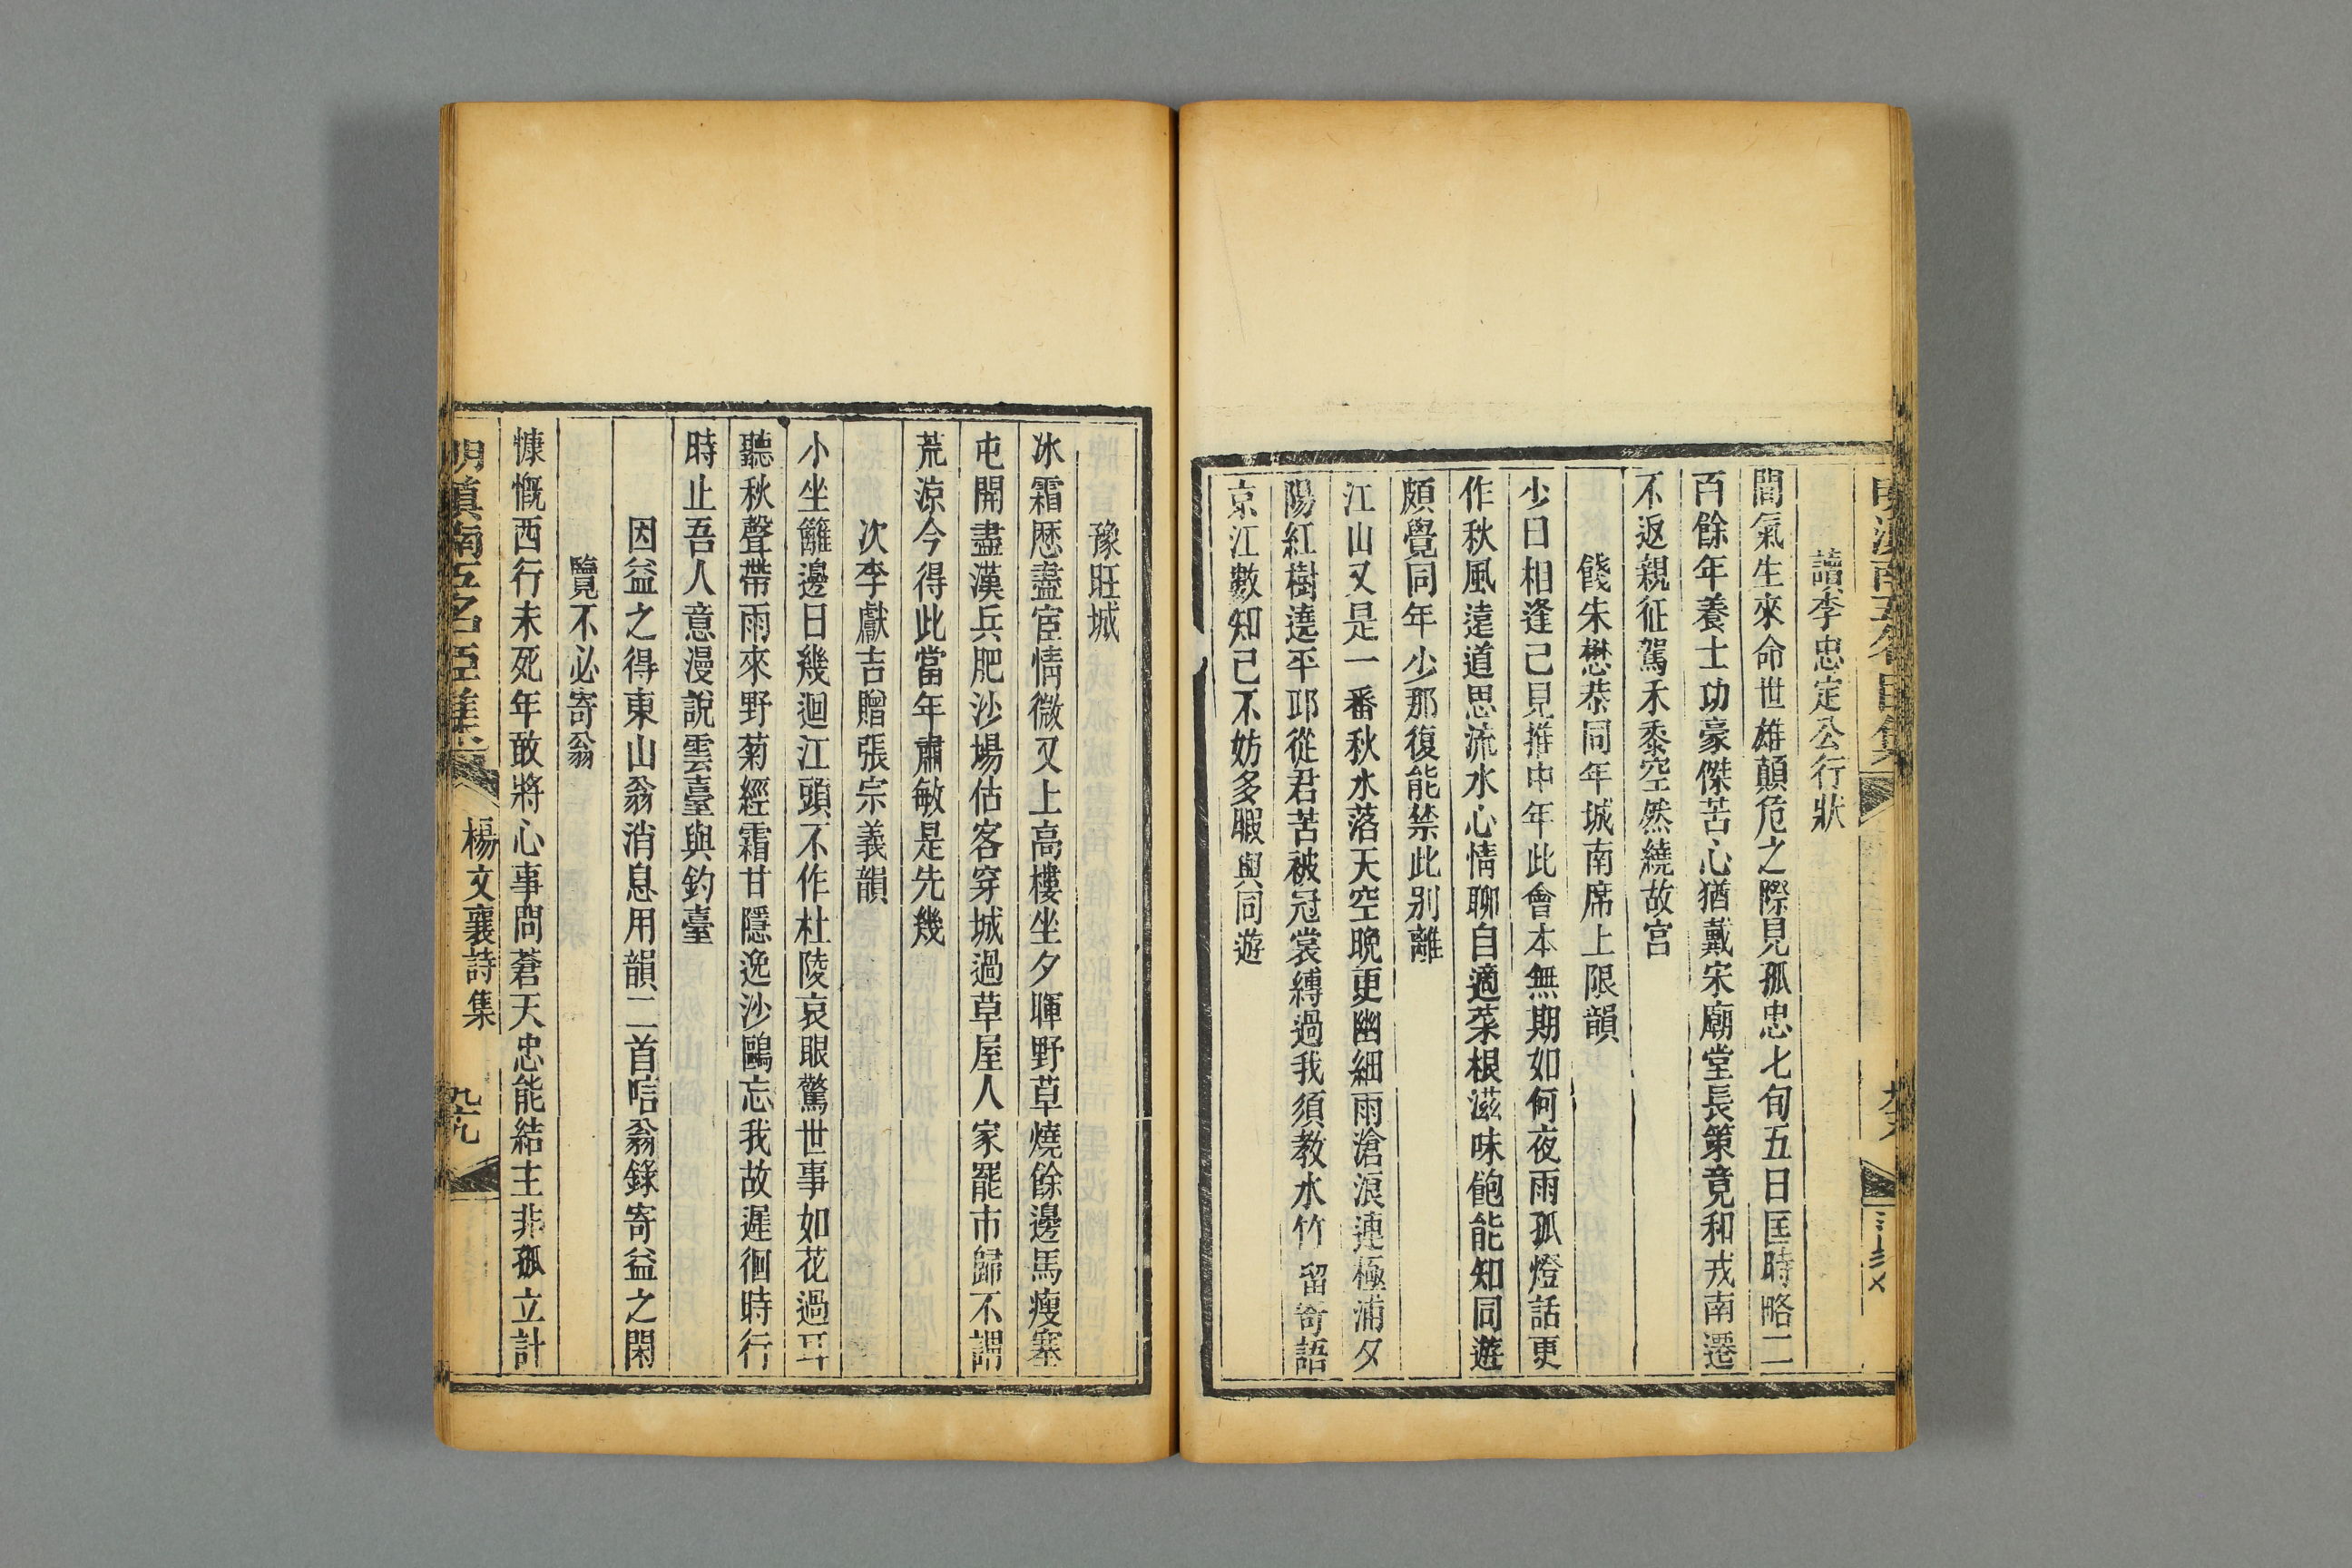 讀李忠定公行狀
間氣生來命世雄顛危之際見孤忠七旬五日匡時略二
百餘年養士功豪傑苦心猶戴宋廟堂長策竟和戎南遷
不返親征駕禾黍空然繞故宮
餞朱懋恭同年城南席上限韻
少日相逢已見推中年此會本無期如何夜雨孤燈話更
作秋風遠道思流水心情聊自適菜根滋味飽能知同遊
頗覺同年少那復能禁此別離
江山又是一番秋水落天空晚更幽細雨滄浪連極浦夕
陽紅樹遶平邱從君苦被冠裳縛過我須教水竹留寄語
京江數知己不妨多暇與同遊
豫旺城
冰霜歷盡宦情微又上高樓坐夕暉野草燒餘邊馬瘦塞
屯開盡漢兵肥沙場估客穿城過草屋人家罷市歸不謂
荒涼今得此當年肅敏是先幾
次李獻吉贈張宗義韻
小坐籬邊日幾迴江頭不作杜陵哀眼驚世事如花過耳
聽秋聲帶雨來野菊經霜甘隱逸沙鷗忘我故遲徊時行
時止吾人意漫說雲臺與釣臺
因益之得東山翁消息用韻二首唁翁錄寄益之閑
覽不必寄翁
慷慨西行未死年敢將心事問蒼天忠能結主非孤立計
明滇南五名臣集
楊文襄詩集